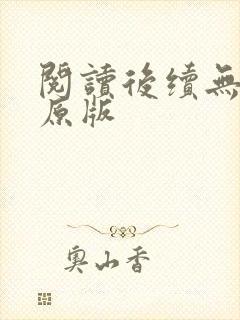 閱讀後續無
原版
奧山香